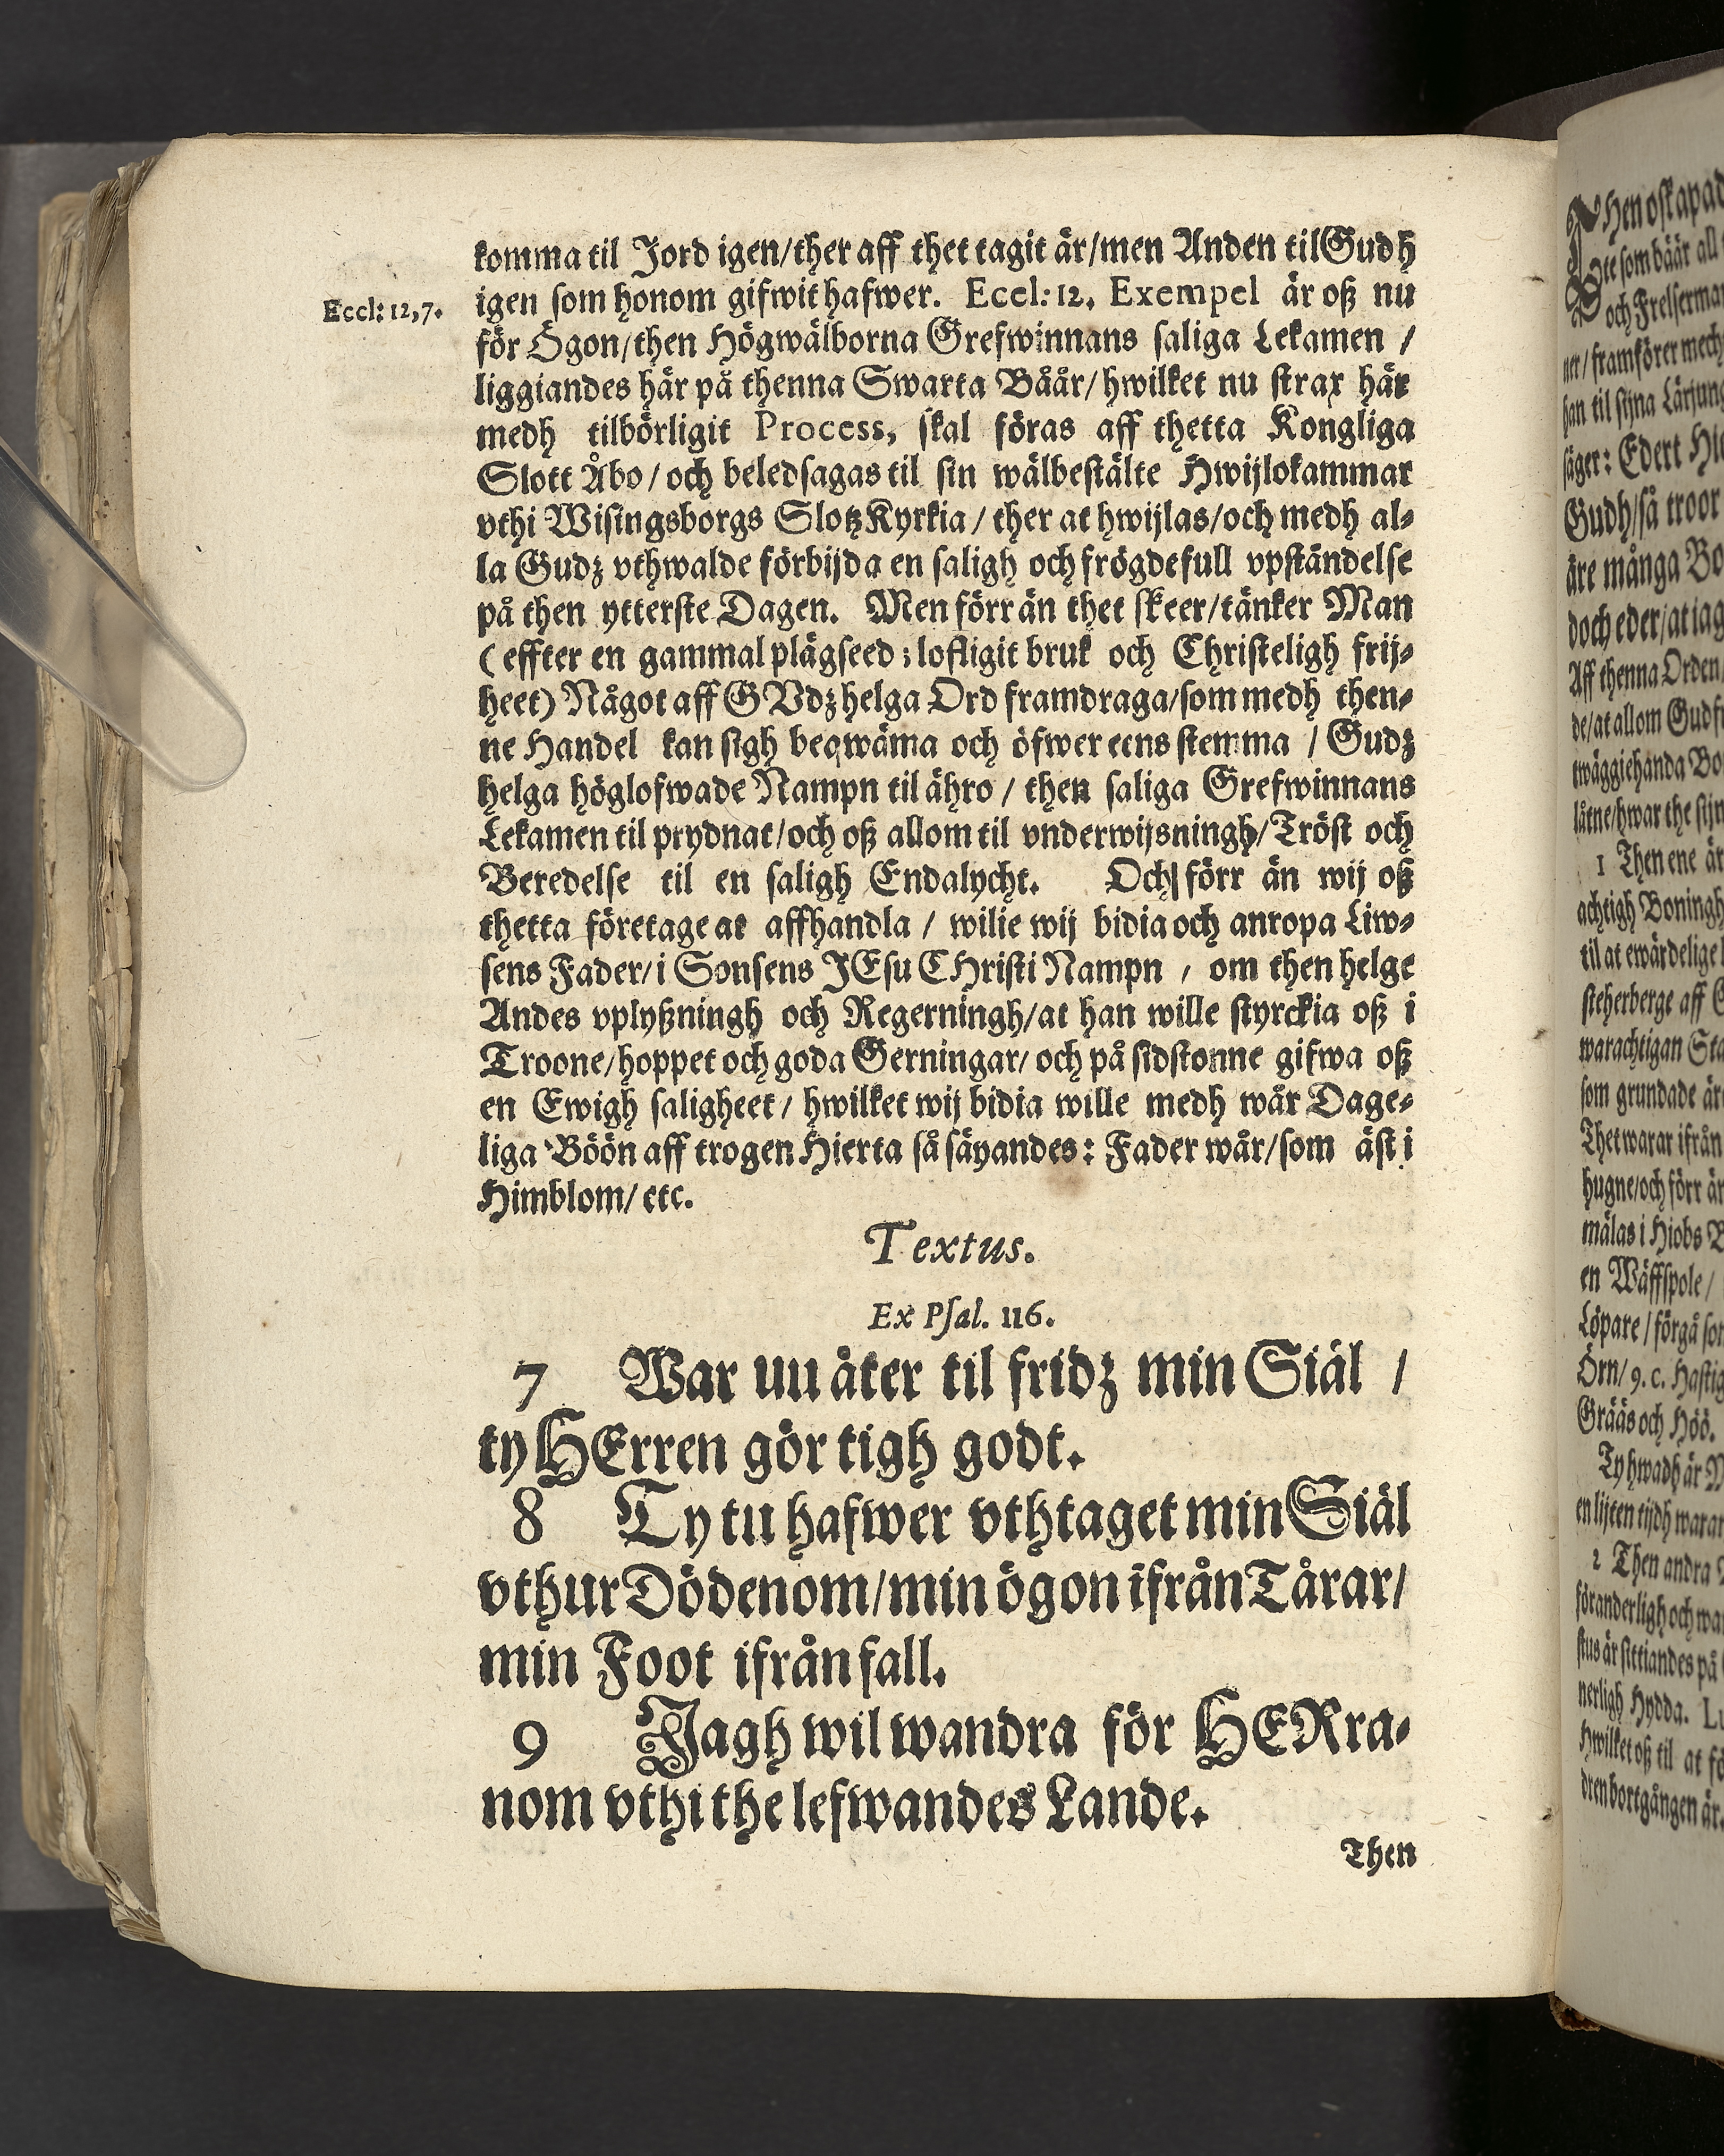 komma til Jord igen/ther aff thet tagit är/men Anden til Gudh
Eccl: 12,7.
igen som honom gifwit hafwer. Eccl: 12. Exempel är oß nu
för Ögon/then Högwälborna Grefwinnans saliga Lekamen /
liggiandes här på thenna Swarta Båår/hwilket nu strax här
medh tilbörligit Process, skal föras aff thetta Kongliga
Slott Åbo/och beledsagas til sin wälbestälte Hwijlokammar
vthi Wisingsborgs SlotzKyrkia/ther at hwijlas/och medh al-
la Gudz vthwalde förbijda en saligh och frögdefull vpständelse
på then ytterste Dagen. Men förr än thet skeer/tänker Man
(effter en gammal plägseed; lofligit bruk och Christeligh frij-
heet) Något aff GVdz helga Ord framdraga/som medh then-
ne Handel kan sigh beqwäma och öfwer eens stemma / Gudz
helga höglofwade Nampn til ähro / then saliga Grefwinnans
Lekamen til prydnat/och oß allom til vnderwijsningh/Tröst och
Beredelse til en saligh Endalycht. Och förr än wij oß
thetta företage at affhandla / wilie wij bidia och anropa Liw-
sens Fader/i Sonsens JEsu CHristi Nampn / om then helge
Andes vplyßningh och Regerningh/at han wille styrckia oß i
Troone/hoppet och goda Gerningar/och på sidstonne gifwa oß
en Ewigh saligheet/ hwilket wij bidia wille medh wår Dage-
liga Böön aff trogen Hierta så säyandes: Fader wår/som äst i
Himblom/etc.
Textus.
Ex Psal. 116.
7 War uu åter til fridz min Siäl /
ty HErren gör tigh godt.
8 Ty tu hafwer vthtaget min Siäl
vthur Dödenom/min ögon ifrån Tårar/
min Foot ifrån fall.
9 Jagh wil wandra för HERra-
nom vthi the lefwandes Lande.
Then